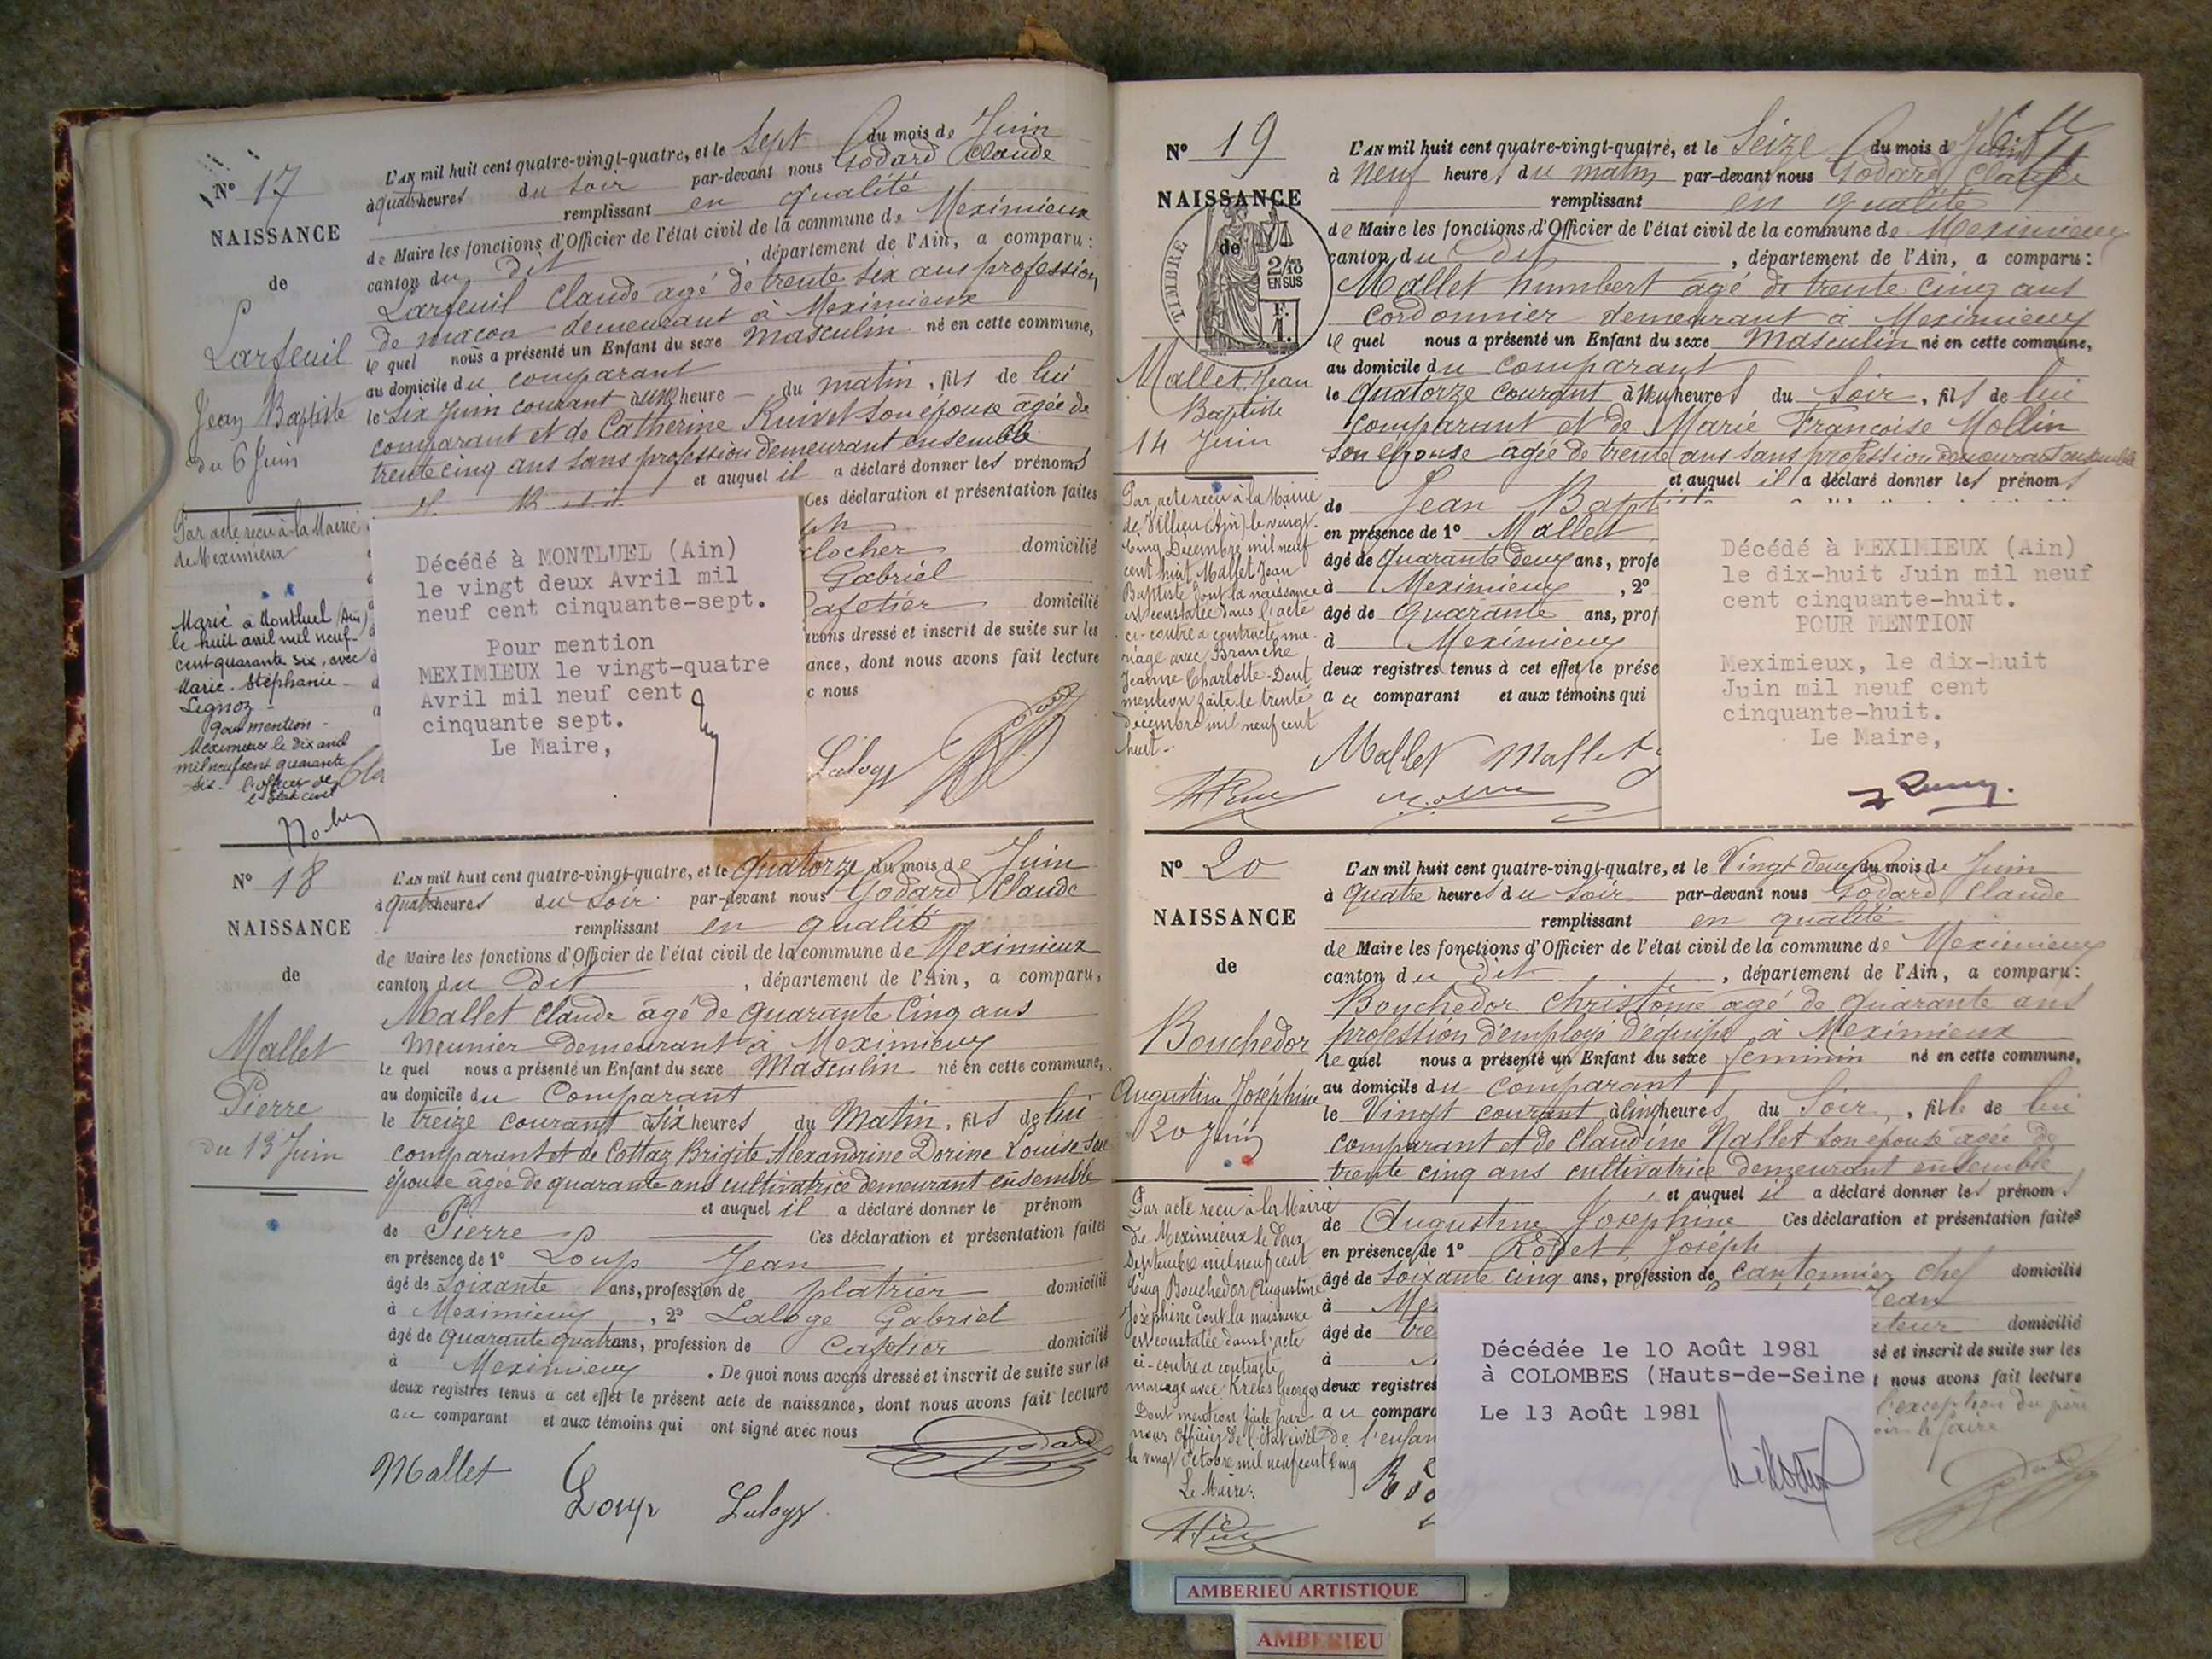 N° 17
NAISSANCE
de
Larfeuil
Jean Baptiste
du 6 Juin
Par acte reçu à la Mairie
de Meximieux
Marié à Montluel (Ain)
le huit avril mil neuf
cent quarante six, avec
Marie. Stéphanie
Lignoz
Pour mention
Meximieux le dix avril
mil neuf cent quarante
six. l'officier de
l'Etat civil
L'AN mil huit cent quatre-vingt-quatre, et le Sept du mois de Juin
à quatre heures du soir par-devant nous Godard Claude
remplissant en qualité
de Maire les fonctions d'Officier de l'état civil de la commune de Meximieux
canton du dit, département de l'Ain, a comparu:
Larfeuil Claude agé de trente six ans profession
de maçon demeurant à Meximieux
le quel nous a présenté un Enfant du sexe Masculin né en cette commune,
au domicile du comparant
le six Juin courant à une heure du matin, fils de lui
comparant et de Catherine Ruivet son épouse agée de
trente cinq ans sans profession demeurant ensemble
et auquel il a déclaré donner les prénoms
Ces déclaration et présentation faites
clocher domicilié
Gabriel
Cafetier domicilié
avons dressé et inscrit de suite sur les
ance, dont nous avons fait lecture
c nous
Laloge
Décédé à MONTLUEL (Ain)
le vingt deux Avril mil
neuf cent cinquante-sept.
Pour mention
MEXIMIEUX le vingt-quatre
Avril mil neuf cent
cinquante sept.
Le Maire,
N° 18
NAISSANCE
de
Mallet
Pierre
du 13 Juin
L'AN mil huit cent quatre-vingt-quatre, et le quatorze du mois de Juin
à quatre heures du soir par-devant nous Godard Claude
remplissant en qualité
de Maire les fonctions d'Officier de l'état civil de la commune de Meximieux
canton du dit, département de l'Ain, a comparu,
Mallet Claude âgé de quarante cinq ans
meunier demeurant à Meximieux
le quel nous a présenté un Enfant du sexe Masculin né en cette commune,
au domicile du Comparant
le treize courant à six heures du Matin, fils de lui
comparant et de Cottaz Brigite Alexandrine Dorine Louise son
épouse âgée de quarante ans cultivatrice demeurant ensemble
et auquel il a déclaré donner le prénom
de Pierre Ces déclaration et présentation faites
en présence de 1° Loup Jean
âgé de soixante ans, profession de platrier domicilié
à Meximieux, 2° Laloge Gabriel
âgé de quarante quatre ans, profession de Cafetier domicilié
à Meximieux. De quoi nous avons dressé et inscrit de suite sur les
deux registres tenus à cet effet le présent acte de naissance, dont nous avons fait lecture
au comparant et aux témoins qui ont signé avec nous
Godard
Mallet Loup Laloge
N° 19
NAISSANCE
de
TIMBRE
2/10
EN SUS
F.
1.
Mallet Jean
Baptiste
14 Juin
Par acte reçu à la Mairie
de Villieu (Ain) le vingt
cinq Décembre mil neuf
cent huit Mallet Jean
Baptiste dont la naissance
est constatée dans l'acte
ci-contre a contracté ma-
riage avec Branche
Jeanne Charlotte. Dont
mention faite le trente
décembre mil neuf cent
huit.
L'AN mil huit cent quatre-vingt-quatre, et le Seize du mois de Juin
à Neuf heures du matin par-devant nous Godard Claude
remplissant en qualité
de Maire les fonctions d'Officier de l'état civil de la commune de Meximieux
canton du dit, département de l'Ain, a comparu:
Mallet humbert âgé de trente cinq ans
cordonnier demeurant à Meximieux
le quel nous a présenté un Enfant du sexe Masculin né en cette commune,
au domicile du comparant
le quatorze courant à neuf heures du soir, fils de lui
comparant et de Marie Françoise Mollin
son épouse agée de trente ans sans profession demeurant ensemble
et auquel il a déclaré donner les prénoms
de Jean Bapt
en présence de 1° Mallet
âgé de quarante deux ans, profe
à Meximieux, 2°
âgé de quarante ans, prof
à Meximieux
deux registres tenus à cet effet le prése
au comparant et aux témoins qui
Mallet Mallet
Décédé à MEXIMIEUX (Ain)
le dix-huit Juin mil neuf
cent cinquante-huit.
POUR MENTION
Meximieux, le dix-huit
Juin mil neuf cent
cinquante-huit.
Le Maire,
N° 20
NAISSANCE
de
Bouchedor
Augustine Joséphine
20 Juin
Par acte reçu à la Mairie
de Meximieux le deux
Septembre mil neuf cent
cinq Bouchedor Augustine
Joséphine dont la naissance
est constatée dans l'acte
ci-contre a contracté
mariage avec Krebs Georges
Dont mention faite par
nous Officier de l'état civil
le vingt Octobre mil neuf cent cinq
Le Maire:
L'AN mil huit cent quatre-vingt-quatre, et le Vingt deux du mois de Juin
à quatre heures du soir par-devant nous Godard Claude
remplissant en qualité
de Maire les fonctions d'Officier de l'état civil de la commune de Meximieux
canton du dit, département de l'Ain, a comparu:
Bouchedor Christôme agé de quarante ans
profession d'employé d'équipe à Meximieux
le quel nous a présenté un Enfant du sexe féminin né en cette commune,
au domicile du comparant
le Vingt courant à cinq heures du Soir, fille de lui
comparant et de Claudine Mallet son épouse agée de
trente cinq ans cultivatrice demeurant ensemble
et auquel il a déclaré donner les prénoms
de Augustine Joséphine Ces déclaration et présentation faites
en présence de 1° Rodet Joséph
âgé de soixante cinq ans, profession de cantonnier chef domicilié
à Me Jean
âgé de tre ateur domicilié
à sé et inscrit de suite sur les
deux registres t nous avons fait lecture
au compara l'exception du père
de l'enfan oir le faire
Godard
Décédée le 10 Août 1981
à COLOMBES (Hauts-de-Seine
Le 13 Août 1981
AMBERIEU ARTISTIQUE
AMBERIEU